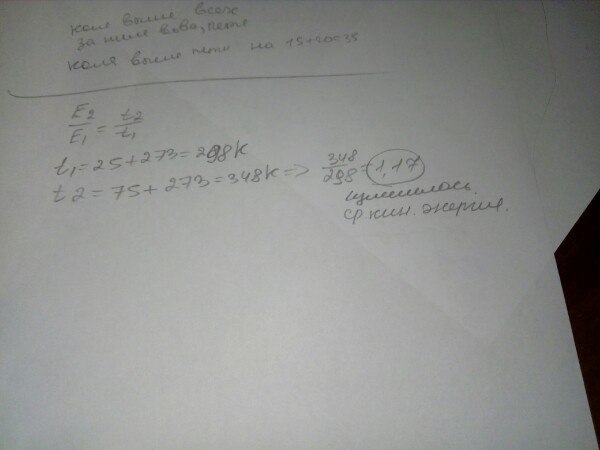 Коля выше всех
за ним Вова, Петя
Коля выше Пети на 15+20=35
E2/E1 = t2/t1
t1 = 25 + 273 = 298K
t2 = 75 + 273 = 348K => 348/298 = 1,17
изменилась
ср. кин. энергия.